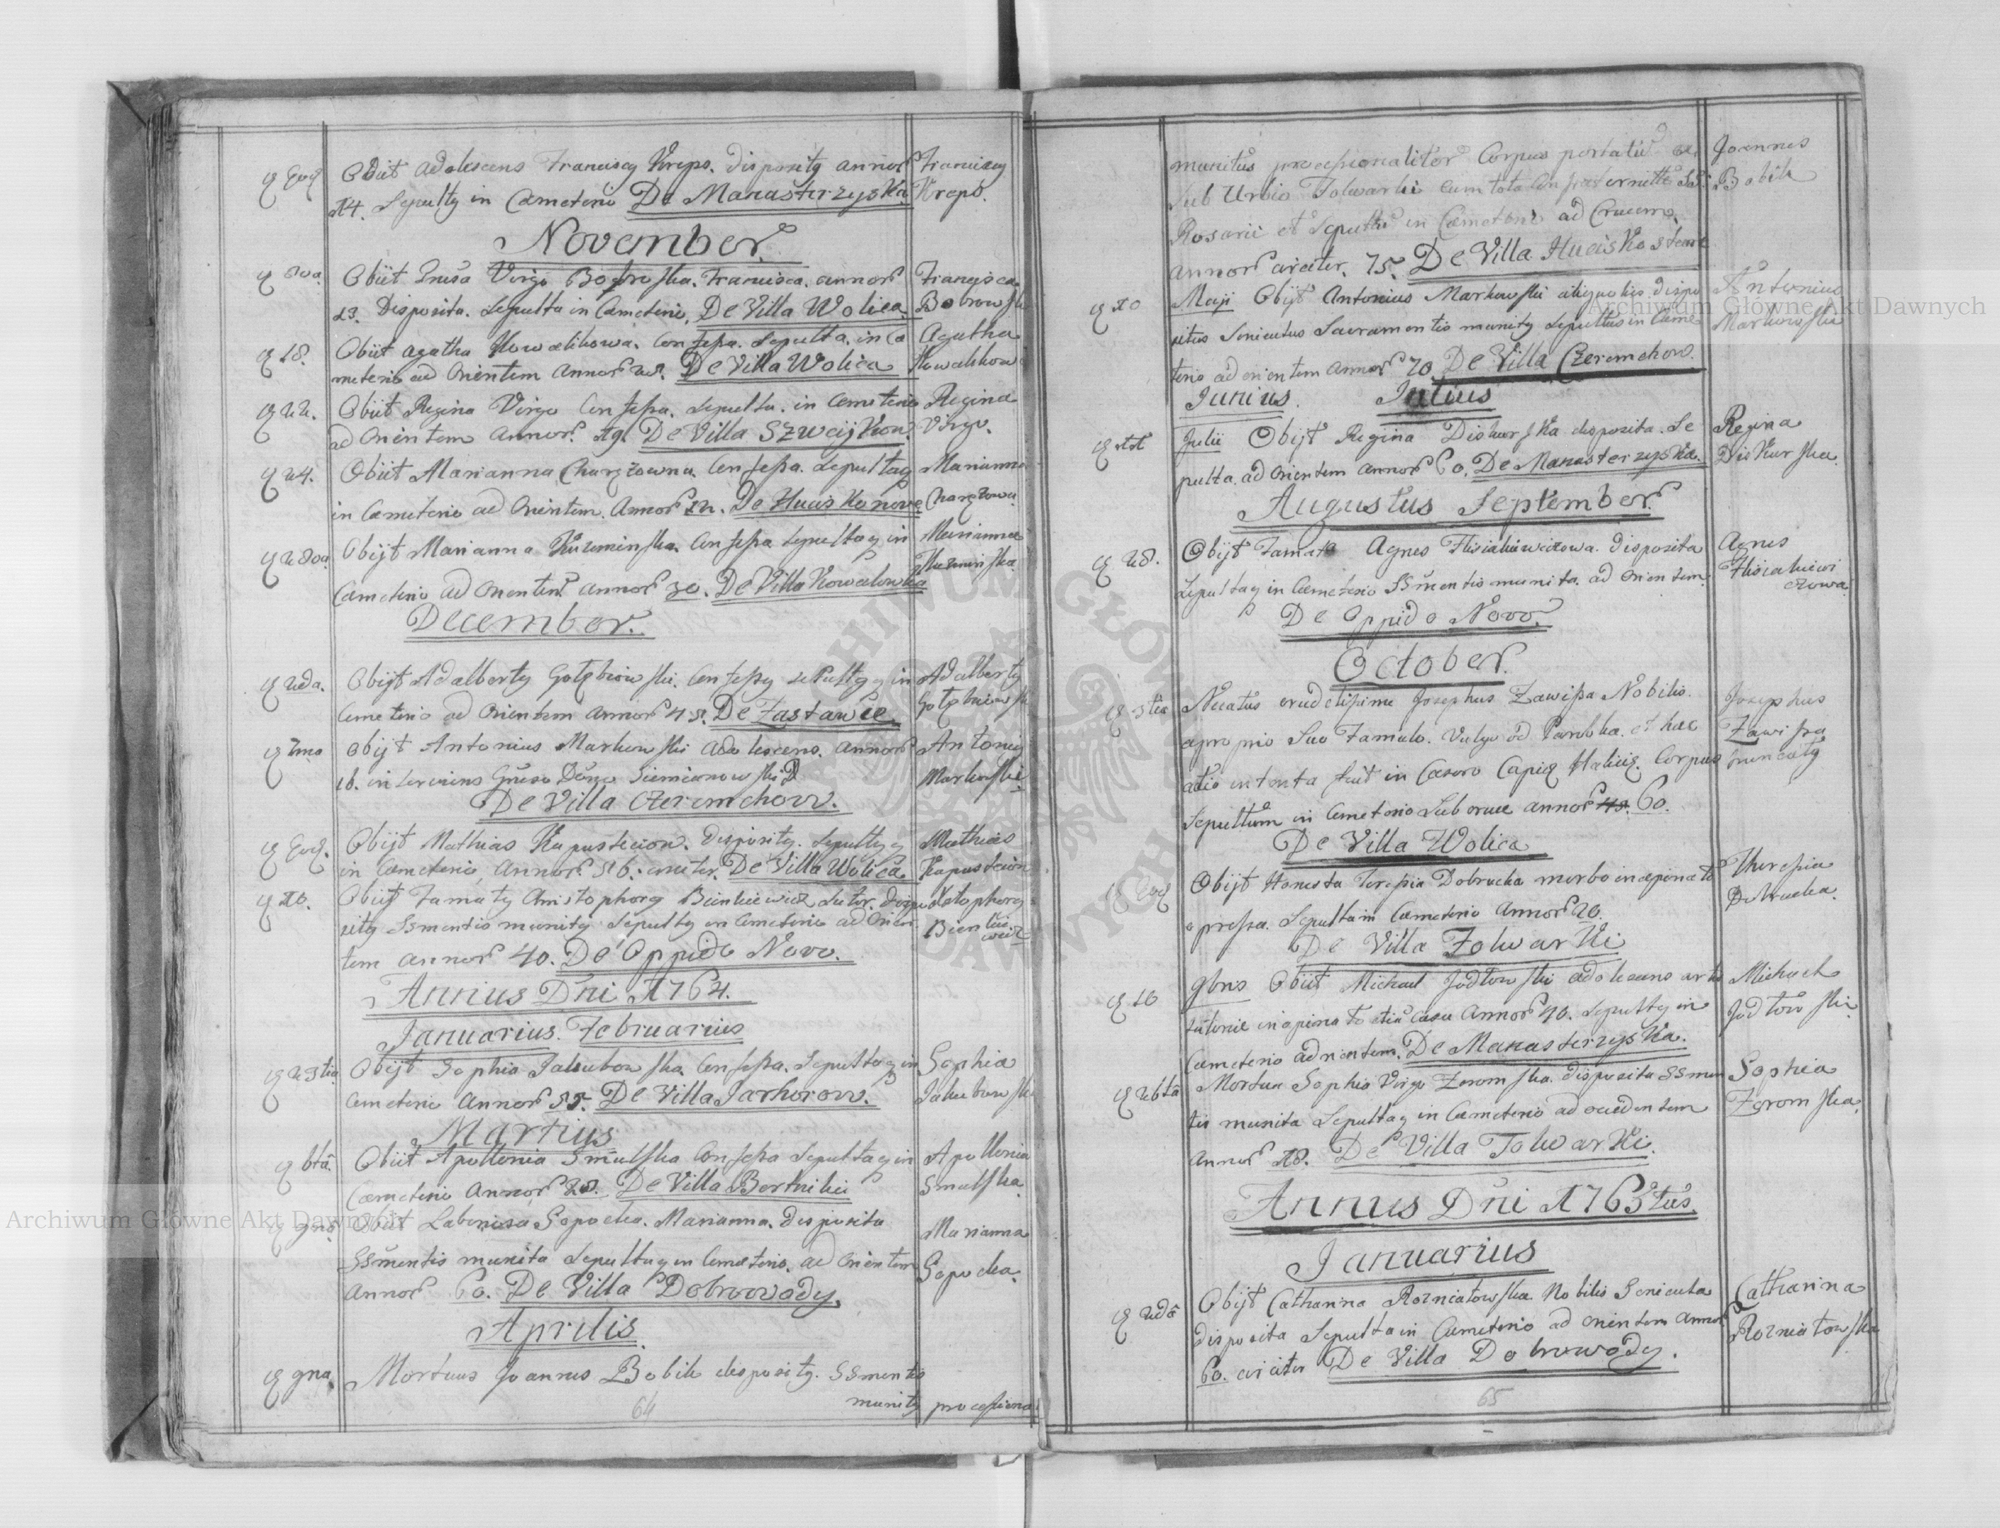 Obiit adolescens Franciscq Kreps. disposity annor
14. Sepulty in Cæmeterio De Manasterzyska
Franciscq
Kreps.
November
Obiit Virgo Bobrowska. Francisca. annor
23. Disposita. Sepulta in Cæmeterio. De Villa Wolica.
Francisca
Bobrowska
q 18.
Obiit Agatha Kowalikowa. Confessa. Sepulta. in Cæ
meterio ad Orientem Annor De Villa Wolica
Agatha
Kowalikowa
q 22.
Obiit Regina Virgo Confessa. Sepulta. in Cæmeterio
ad Orientem Annor. 19. De Villa Szweijkow.
Regina
Virgo.
q 24.
Obiit Marianna Charężowna. Confessa. Sepulta q
in Cæmeterio ad Orientem. Annor 12. De Huciskonowe
Marianna
Charężowna
Obijt Marianna Kuzminska. Confessa Sepulta q in
Cæmeterio ad Orientem annor 30. De Villa Kowalowka
Marianna
Kuzminska
December.
q 2da.
Obijt Adalberty Gołębiowski. Confessy Sepulty q in
Cæmeterio ad Orientem annor 48. De Zastawce.
Adalberty
Gołębiowski
q 7ma
Obijt Antonius Markowski adolescens. annor
18. inserviens Siemianowski
De Villa Czeremchow.
Antoniq
Markowski
Obijt Mathias Kapuscion. Disposity. Sepulty q
in Cæmeterio. Annor. 56. circiter. De Villa Wolica.
Mathias
Kapuscion
q 10.
Obiit Famaty Christophorq Bienkiewicz Sutor. dispo
sity SSmentis munity Sepulty in Cæmeterio ad Orien
tem annor 40. De Oppido Novo.
Xstophorq
Bienkie
wicz
Annus Dni 1764.
Januarius. Februarius
q 23tia
Obijt Sophia Jakubowska Confessa. Sepulta q in
Cæmeterio Annor 55. De Villa Jarhorow.
Sophia
Jakubowska
Martius
q 6ta
Obiit Apollonia Smulska Confessa Sepulta q in
Cæmeterio Annor 28. De Villa Bertniki
Apollonia
Smulska
q 9na
Obiit Laboriosa Sopocka. Marianna. Disposita
SSmentis munita Sepulta q in Cæmeterio. ad Orientem
annor 60. De Villa Dobrowody
Marianna
Sopocka.
Aprilis.
q 9na
Mortuus Joannes Bobik disposity. SSmentis
munity processiona
64
munitus processionaliter Corpus portatu ex
Sub Urbio Folwarki cum tota Confraternitate
Rosarii et Sepultu in Cæmeterio ad Crucem.
annor circiter. 75. De Villa Hucisko stare
Joannes
Bobik
q 10
Maji Obijt Antonius Markowski aliquoties dispo
situs Senicutus Sacramentis munity Sepultus in Cæme
terio ad orientem annor 70. De Villa Czeremchow.
Antonius
Markowski
Junius. Julius
q 11
Julii Obijt Regina Diskurska disposita. Se
pulta. ad Orientem annor 60. De Manasterzyska.
Regina
Diskurska
Augustus September.
q 28.
Obijt Famata Agnes Flisiakiewiczowa. Disposita
Sepulta q in Cæmeterio SSmentis munita. ad Orientem.
De Oppido Novo.
Agnes
Flisiakiewi
czowa
October.
q 3tia
Necatus erudetissime Josephus Zawissa Nobilis.
a proprio Suo Famulo. Vulgo od Parobka. et hæc
actio intenta fuit in Casoro Capiq Haliciq. Corpus
Sepultum in Cæmeterio Sub cruce annor 48. 60.
Josephus
Zawissa
truncatq
De Villa Wolica
Obijt Honesta Teressia Dobrucka morbo inopinato
opressa. Sepulta in Cæmeterio Annor 20.
De Villa Folwarki
Theressia
Dobrucka.
q 16
9bris Obiit Michael Jodłowski adolescens
inopinato etiā casu Annor 40. Sepulty in
Cæmeterio ad orientem. De Manasterzyska.
Michael
Jodłowski
q 26ta
Mortua Sophia Virgo Zeromska. disposita SSmen
tis munita Sepulta q in Cæmeterio ad occidentem
Annor 18. De Villa Folwarki.
Sophia
Zeromska.
Annus Dni 1765tus.
Januarius
q 22da
Obijt Catharina Rozniatowska Nobilis Senicuta
disposita Sepulta in Cæmeterio ad orientem Annor
60. circiter De Villa Dobrowody.
Catharina
Rozniatowska
65
Archiwum Główne Akt Dawnych
Archiwum Główne Akt Dawnych
ARCHIWUM GŁÓWNE AKT DAWNYCH